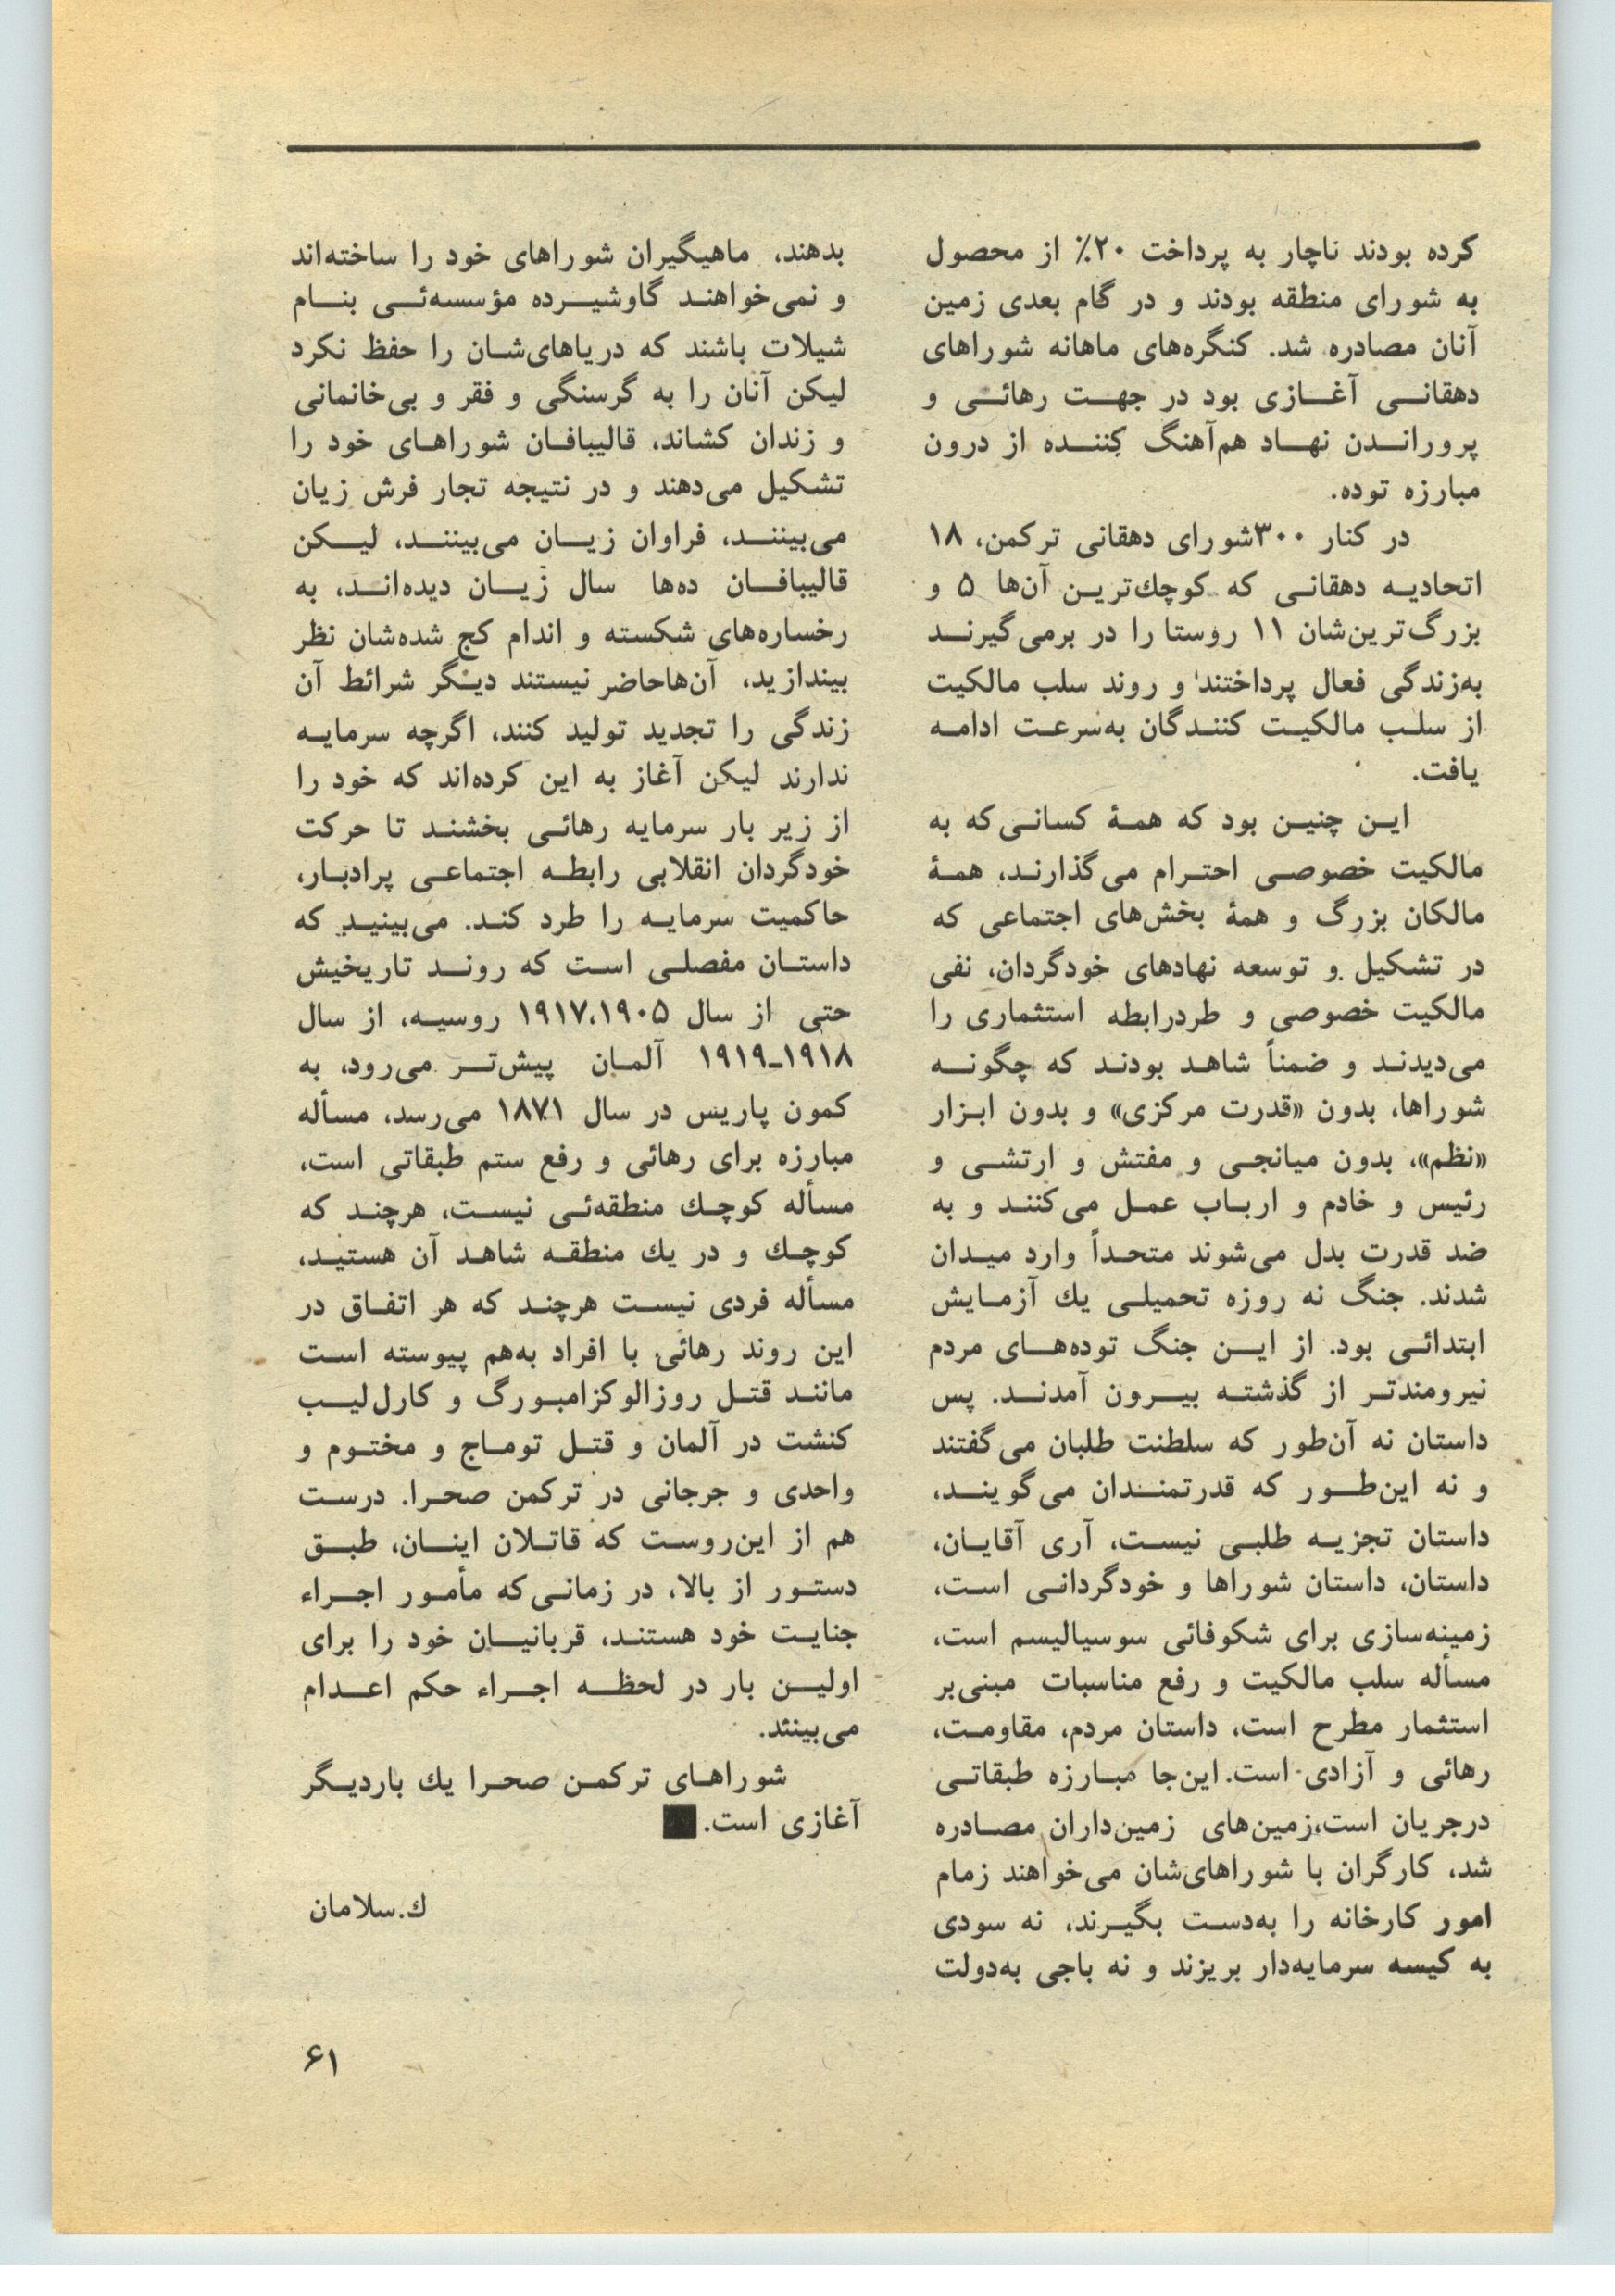 کرده بودند ناچار به پرداخت ۲۰٪ از محصول
به شورای منطقه بودند و در گام بعدی زمین
آنان مصادره شد. کنگره‌های ماهانه شوراهای
دهقانی آغازی بود در جهت رهائی و
پروراندن نهاد هم‌آهنگ کننده از درون
مبارزه توده.
در کنار ۳۰۰شورای دهقانی ترکمن، ۱۸
اتحادیه دهقانی که کوچك‌ترین آن‌ها ۵ و
بزرگ‌ترین‌شان ۱۱ روستا را در برمی‌گیرند
به‌زندگی فعال پرداختند و روند سلب مالکیت
از سلب مالکیت کنندگان به‌سرعت ادامه
یافت.
این چنین بود که همهٔ کسانی‌که به
مالکیت خصوصی احترام می‌گذارند، همهٔ
مالکان بزرگ و همهٔ بخش‌های اجتماعی که
در تشکیل و توسعه نهادهای خودگردان، نفی
مالکیت خصوصی و طردرابطه استثماری را
می‌دیدند و ضمناً شاهد بودند که چگونه
شوراها، بدون «قدرت مرکزی» و بدون ابزار
«نظم»، بدون میانجی و مفتش و ارتشی و
رئیس و خادم و ارباب عمل می‌کنند و به
ضد قدرت بدل می‌شوند متحداً وارد میدان
شدند. جنگ نه روزه تحمیلی یك آزمایش
ابتدائی بود. از این جنگ توده‌های مردم
نیرومندتر از گذشته بیرون آمدند. پس
داستان نه آن‌طور که سلطنت طلبان می‌گفتند
و نه این‌طور که قدرتمندان می‌گویند،
داستان تجزیه طلبی نیست، آری آقایان،
داستان، داستان شوراها و خودگردانی است،
زمینه‌سازی برای شکوفائی سوسیالیسم است،
مسأله سلب مالکیت و رفع مناسبات مبنی‌بر
استثمار مطرح است، داستان مردم، مقاومت،
رهائی و آزادی است. این‌جا مبارزه طبقاتی
درجریان است،زمین‌های زمین‌داران مصادره
شد، کارگران با شوراهای‌شان می‌خواهند زمام
امور کارخانه را به‌دست بگیرند، نه سودی
به کیسه سرمایه‌دار بریزند و نه باجی به‌دولت
بدهند، ماهیگیران شوراهای خود را ساخته‌اند
و نمی‌خواهند گاوشیرده مؤسسه‌ئی بنام
شیلات باشند که دریاهای‌شان را حفظ نکرد
لیکن آنان را به گرسنگی و فقر و بی‌خانمانی
و زندان کشاند، قالیبافان شوراهای خود را
تشکیل می‌دهند و در نتیجه تجار فرش زیان
می‌بینند، فراوان زیان می‌بینند، لیکن
قالیبافان ده‌ها سال زیان دیده‌اند، به
رخساره‌های شکسته و اندام کج شده‌شان نظر
بیندازید، آن‌هاحاضر نیستند دیگر شرائط آن
زندگی را تجدید تولید کنند، اگرچه سرمایه
ندارند لیکن آغاز به این کرده‌اند که خود را
از زیر بار سرمایه رهائی بخشند تا حرکت
خودگردان انقلابی رابطه اجتماعی پرادبار،
حاکمیت سرمایه را طرد کند. می‌بینید که
داستان مفصلی است که روند تاریخیش
حتی از سال ۱۹۱۷،۱۹۰۵ روسیه، از سال
۱۹۱۸ـ۱۹۱۹ آلمان پیش‌تر می‌رود، به
کمون پاریس در سال ۱۸۷۱ می‌رسد، مسأله
مبارزه برای رهائی و رفع ستم طبقاتی است،
مسأله کوچك منطقه‌ئی نیست، هرچند که
کوچك و در یك منطقه شاهد آن هستید،
مسأله فردی نیست هرچند که هر اتفاق در
این روند رهائی با افراد به‌هم پیوسته است
مانند قتل روزالوکزامبورگ و کارل‌لیب
کنشت در آلمان و قتل توماج و مختوم و
واحدی و جرجانی در ترکمن صحرا. درست
هم از این‌روست که قاتلان اینان، طبق
دستور از بالا، در زمانی‌که مأمور اجراء
جنایت خود هستند، قربانیان خود را برای
اولین بار در لحظه اجراء حکم اعدام
می‌بینند.
شوراهای ترکمن صحرا یك باردیگر
آغازی است. ■
ك.سلامان
۶۱